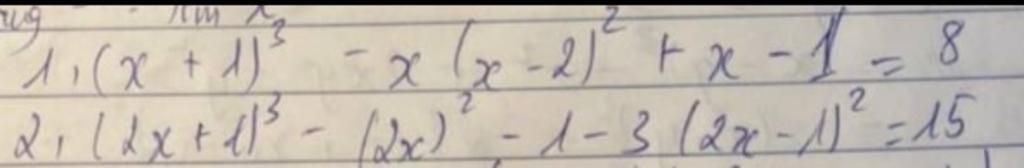 1, (x + 1)³ - x (x - 2)² + x - 1 = 8
2, (2x + 1)³ - (2x)² - 1 - 3 (2x - 1)² = 15